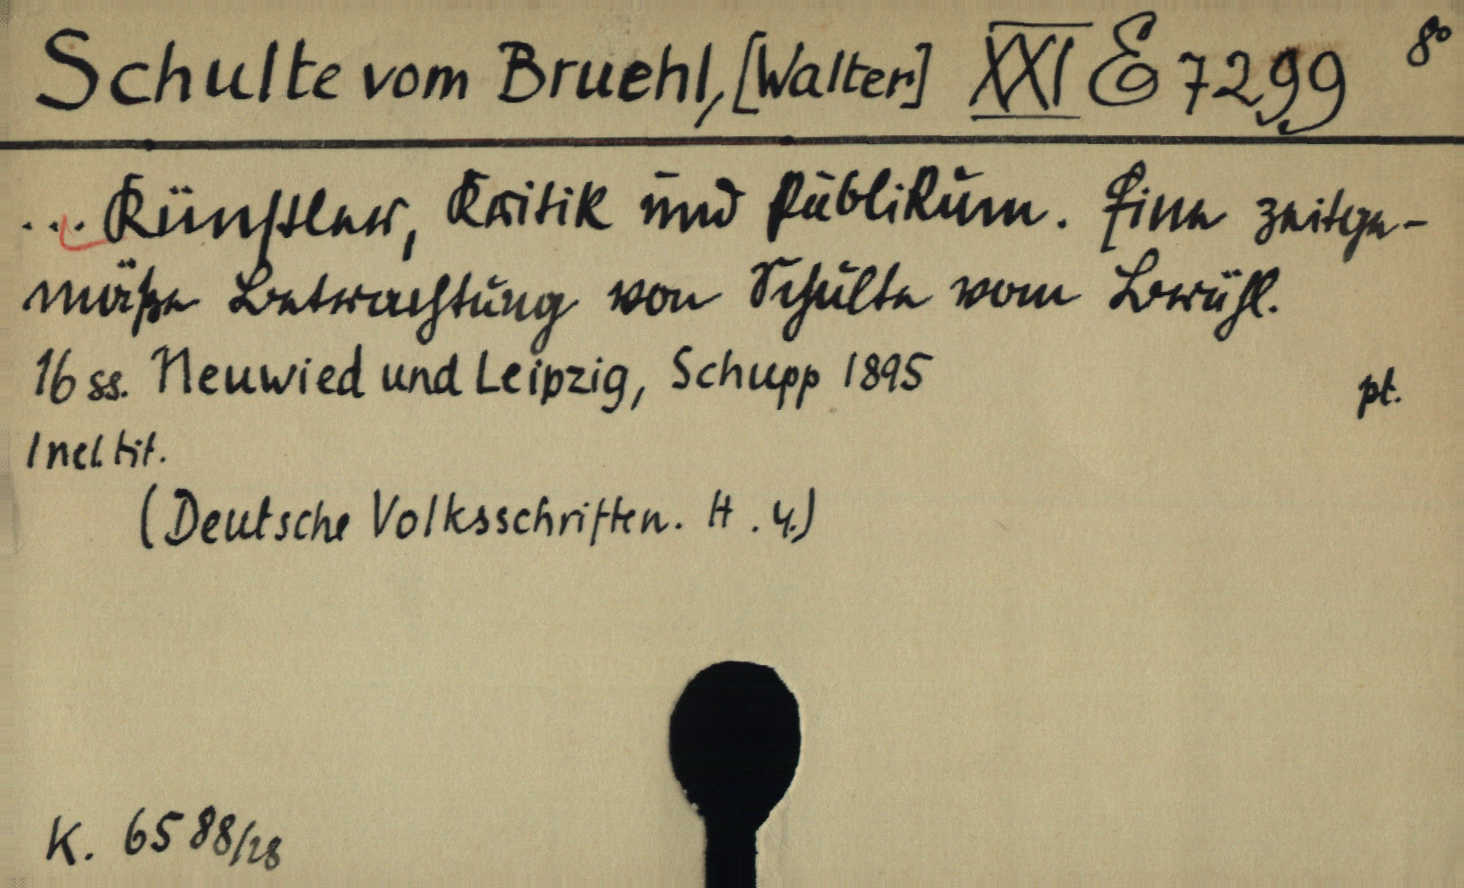 Schulte vom Bruehl, [Walter] XXI E 7299 8°
... Künstler, Kritik und Publikum. Eine zeitge-
mäße Betrachtung von Schulte vom Brühl.
16 ss. Neuwied und Leipzig, Schupp 1895 pt.
Incl. tit.
(Deutsche Volksschriften. H. 4.)
K. 6588/28